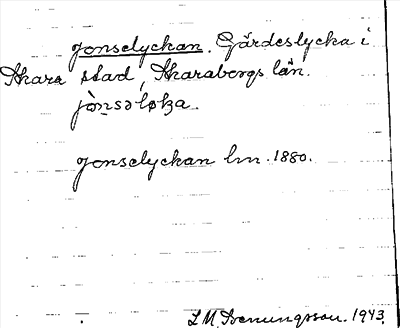 Jonselyckan. Gärdeslycka i
Skara stad, Skaraborgs län.
jònsəløka
Jonselyckan lm. 1880.
L M Svenungsson. 1943.